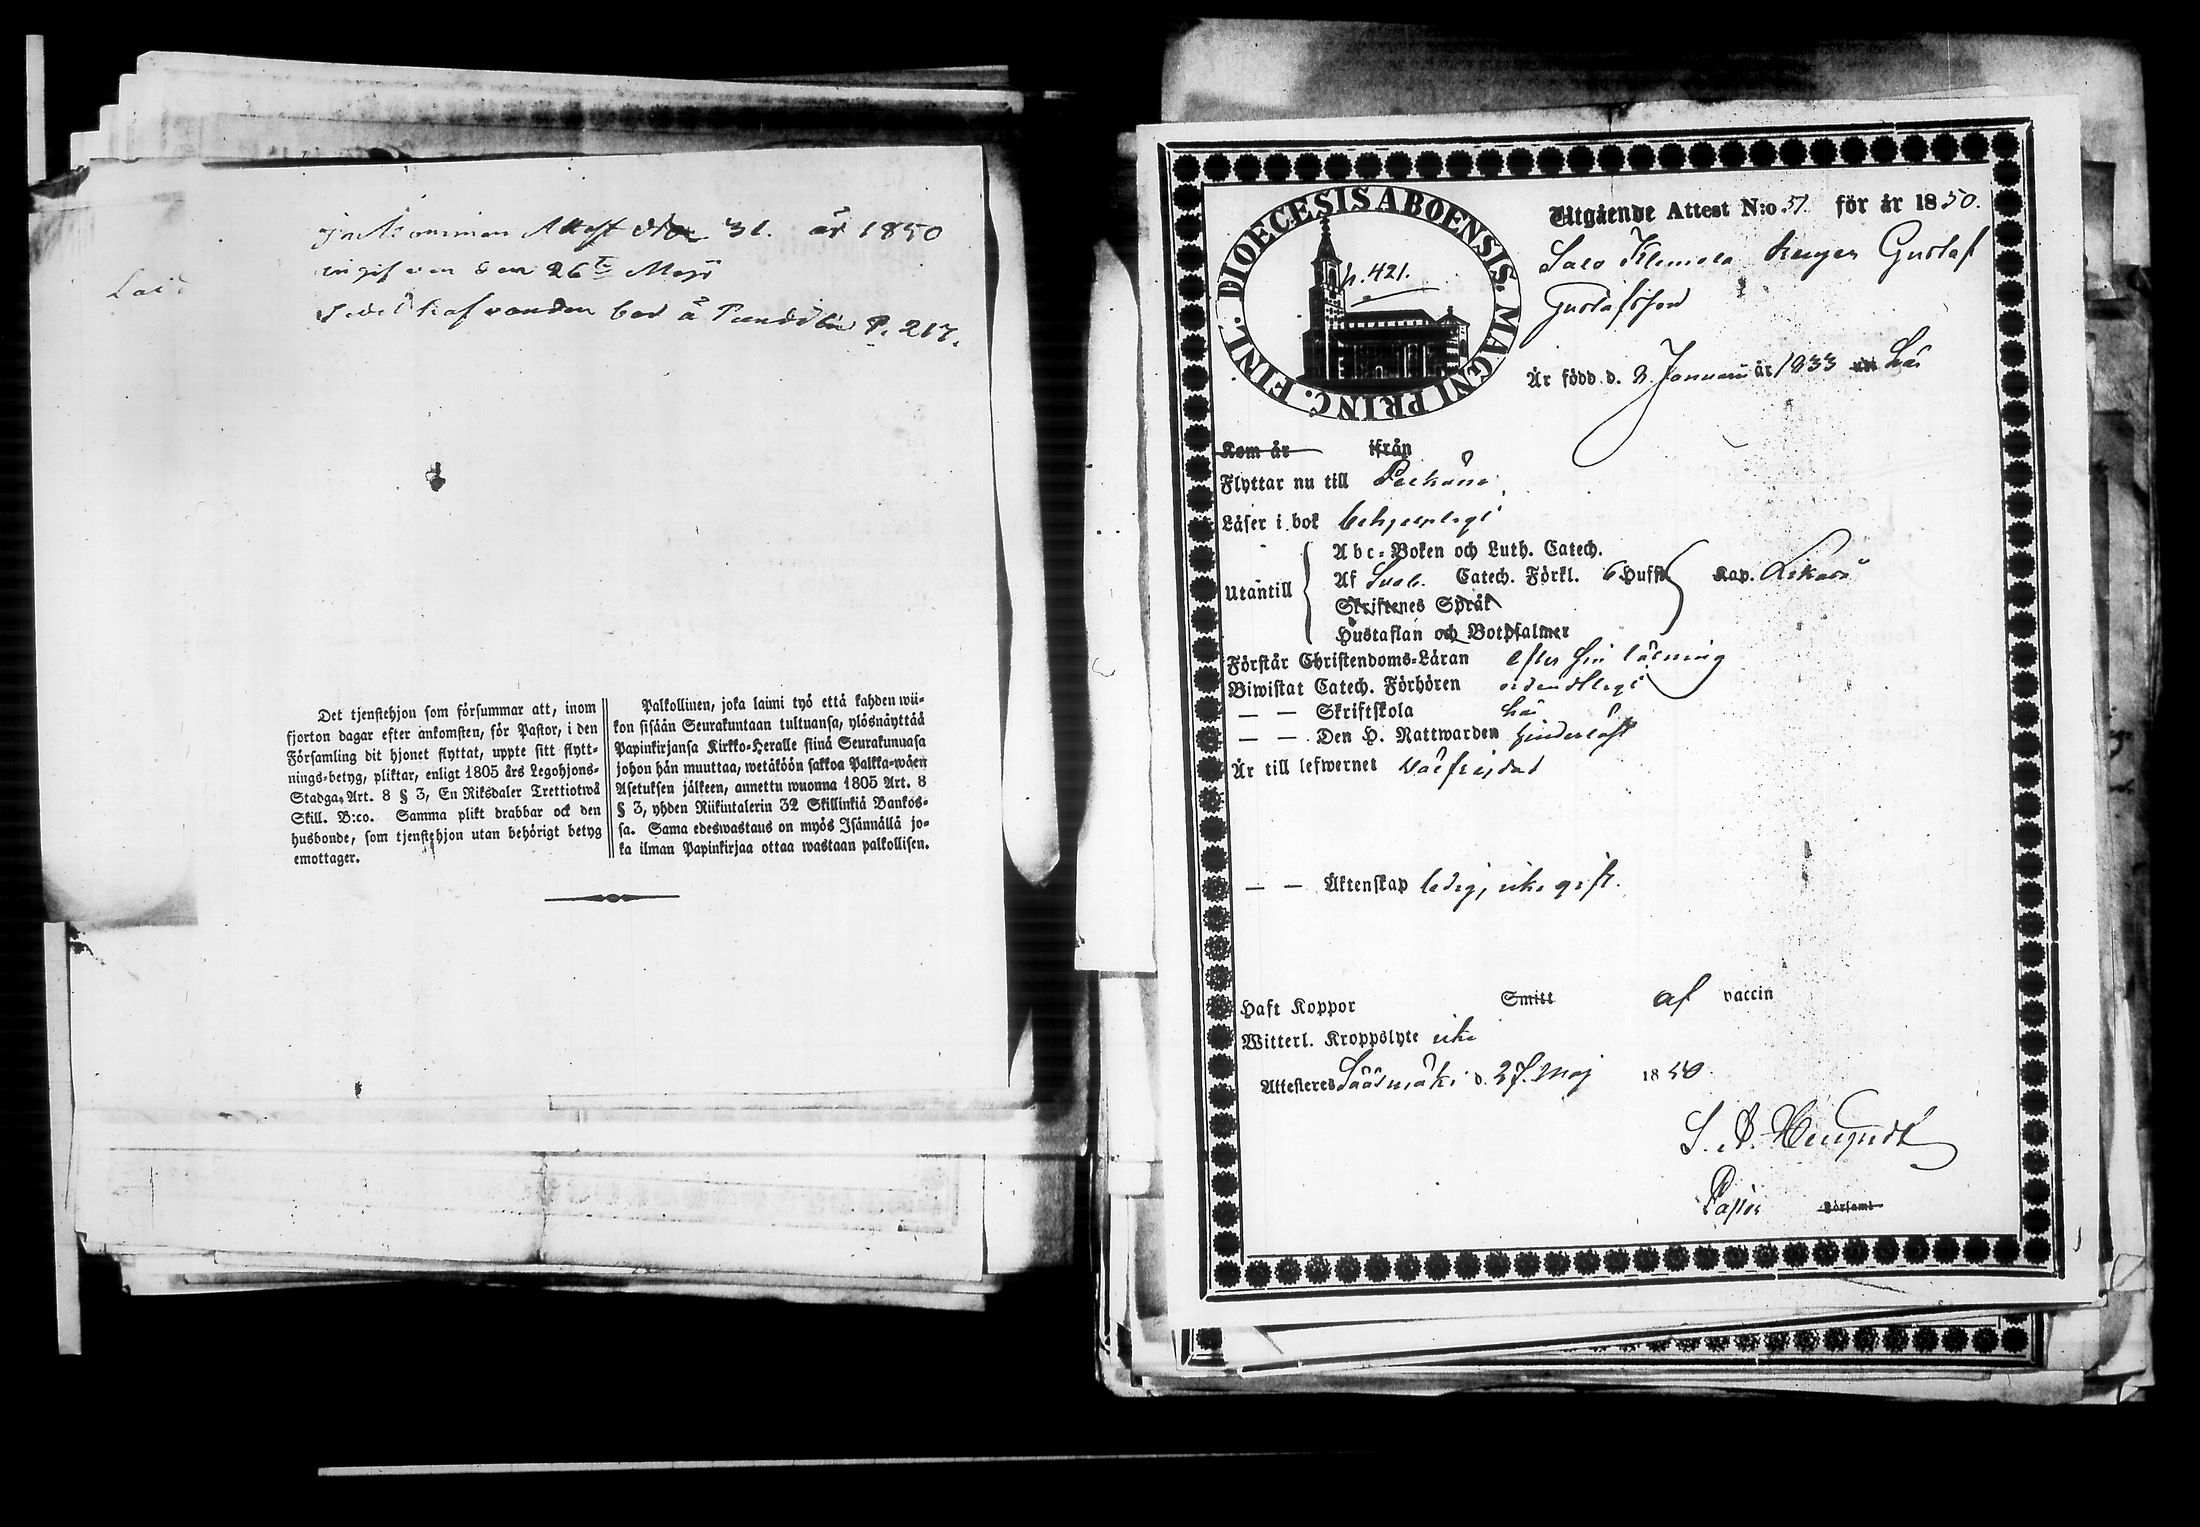 Inkommen Attest No 31. år 1850
ingifven den 26te Maji
Sedelhafvanden bor å P. 217.
Det tjenstehjon som försummar att, inom
fjorton dagar efter ankomsten, för Pastor, i den
Församling dit hjonet flyttat, uppte sitt flytt-
nings-betyg, pliktar, enligt 1805 års Legohjons-
Stadga, Art. 8 § 3, En Riksdaler Trettiotwå
Skill. B:co. Samma plikt drabbar ock den
husbonde, som tjenstehjon utan behörigt betyg
emottager.
Palkollinen, joka laimi työ että kahden wii-
kon sisään Seurakuntaan tultuansa, ylösnäyttää
Papinkirjansa Kirkko-Heralle siinä Seurakunnasa
johon hän muuttaa, wetäköön sakkoa Palkka-wäen
Asetuksen jälkeen, annettu wuonna 1805 Art. 8
§ 3, yhden Riikintalerin 32 Skillinkiä Bankos-
sa. Sama edeswastaus on myös Isännällä jo-
ka ilman Papinkirjaa ottaa wastaan palkollisen.
DIOECESIS ABOENSIS. MAGNI PRINC. FINL.
p. 421.
Utgående Attest N:o 51. för år 1850.
Gustaf
Gustafsson
Är född d. 8 Januari år 1833 här
Kom år ifrån
Flyttar nu till Pelkäne
Läser i bok behjelpligt
Utantill
Abc-Boken och Luth. Catech.
Af Sveb. Catech. Förkl. 6 Hufst. Kap.
Skriftenes Språk
Hustaflan och Botpsalmer
Förstår Christendoms-Läran efter sin läsning
Biwistat Catech. Förhören ordentligt
— — Skriftskola här
— — Den H. Nattwarden hinderlöst
Är till lefwernet wälfrejdad
— — Äktenskap ledig, icke gift.
Haft Koppor Smitt af vaccin
Witterl. Kroppslyte icke
Attesteres Sääsmäki d. 27. Maj 1850.
Pastor Församl.